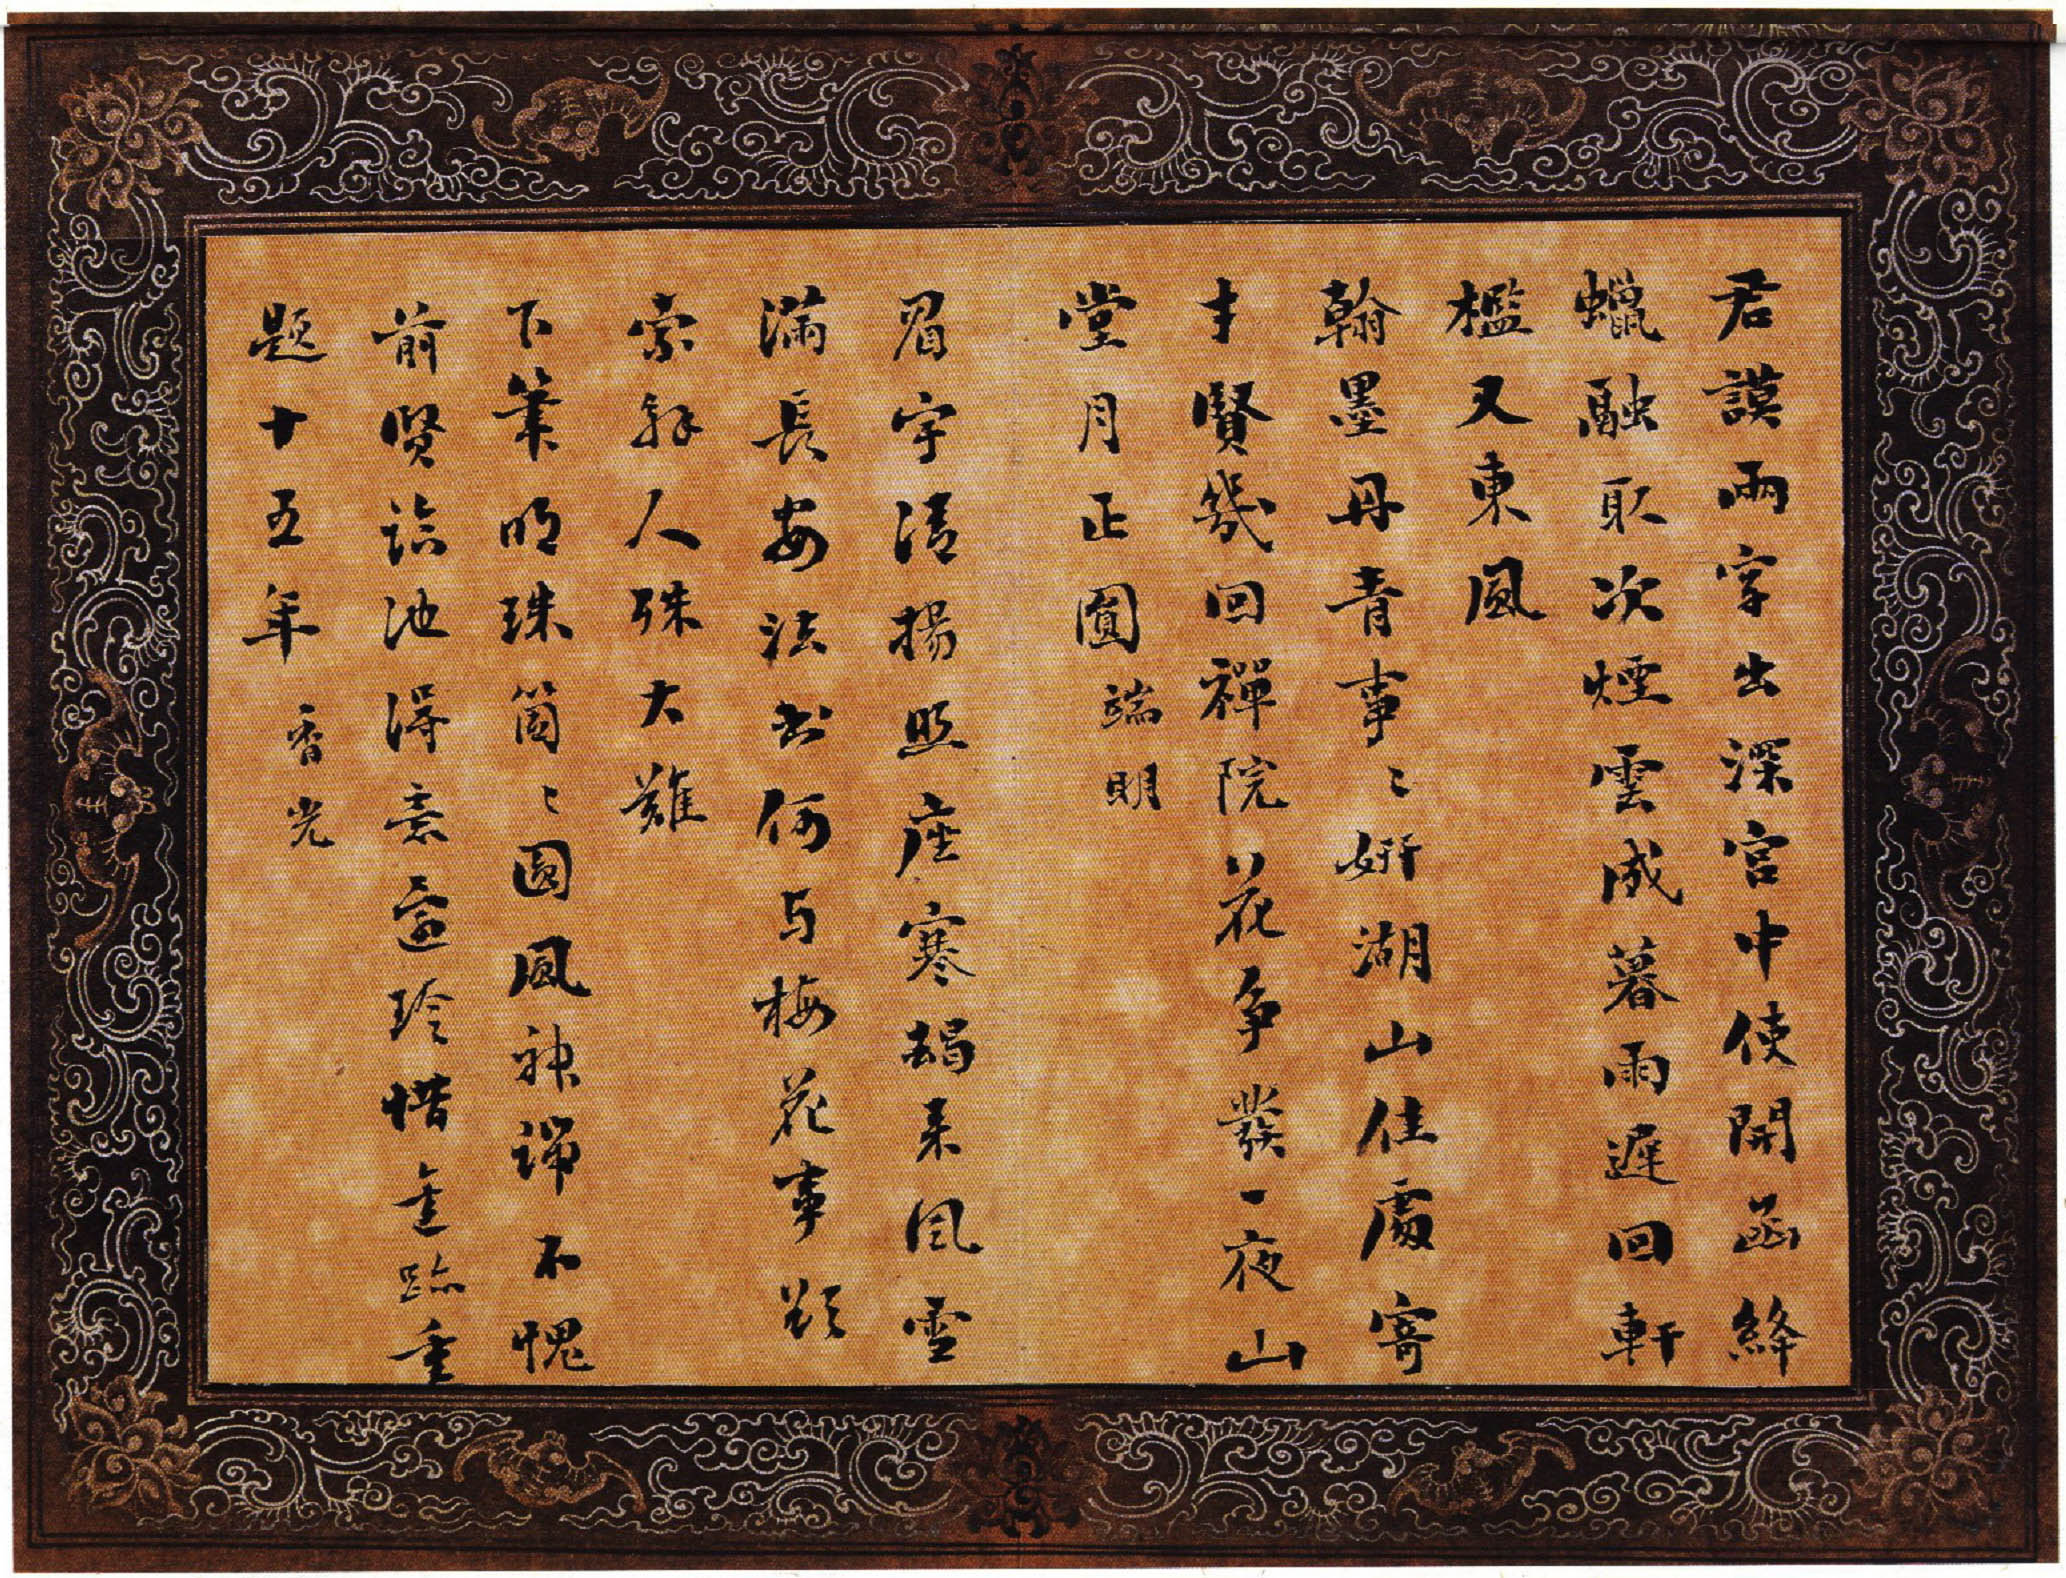 君謨兩字出深宮中使開函絳
蠟融取次煙雲成暮雨遲回軒
檻又東風
翰墨丹青事〻妍湖山佳處寄
才賢幾回禪院花爭發一夜山
堂月正圓 端明
眉宇清揚照座寒朅來風雪
滿長安法書何与梅花事欲
索解人殊大難
下筆明珠箇〻圓風神端不愧
前賢臨池得意還珍惜重
題十五年 香光